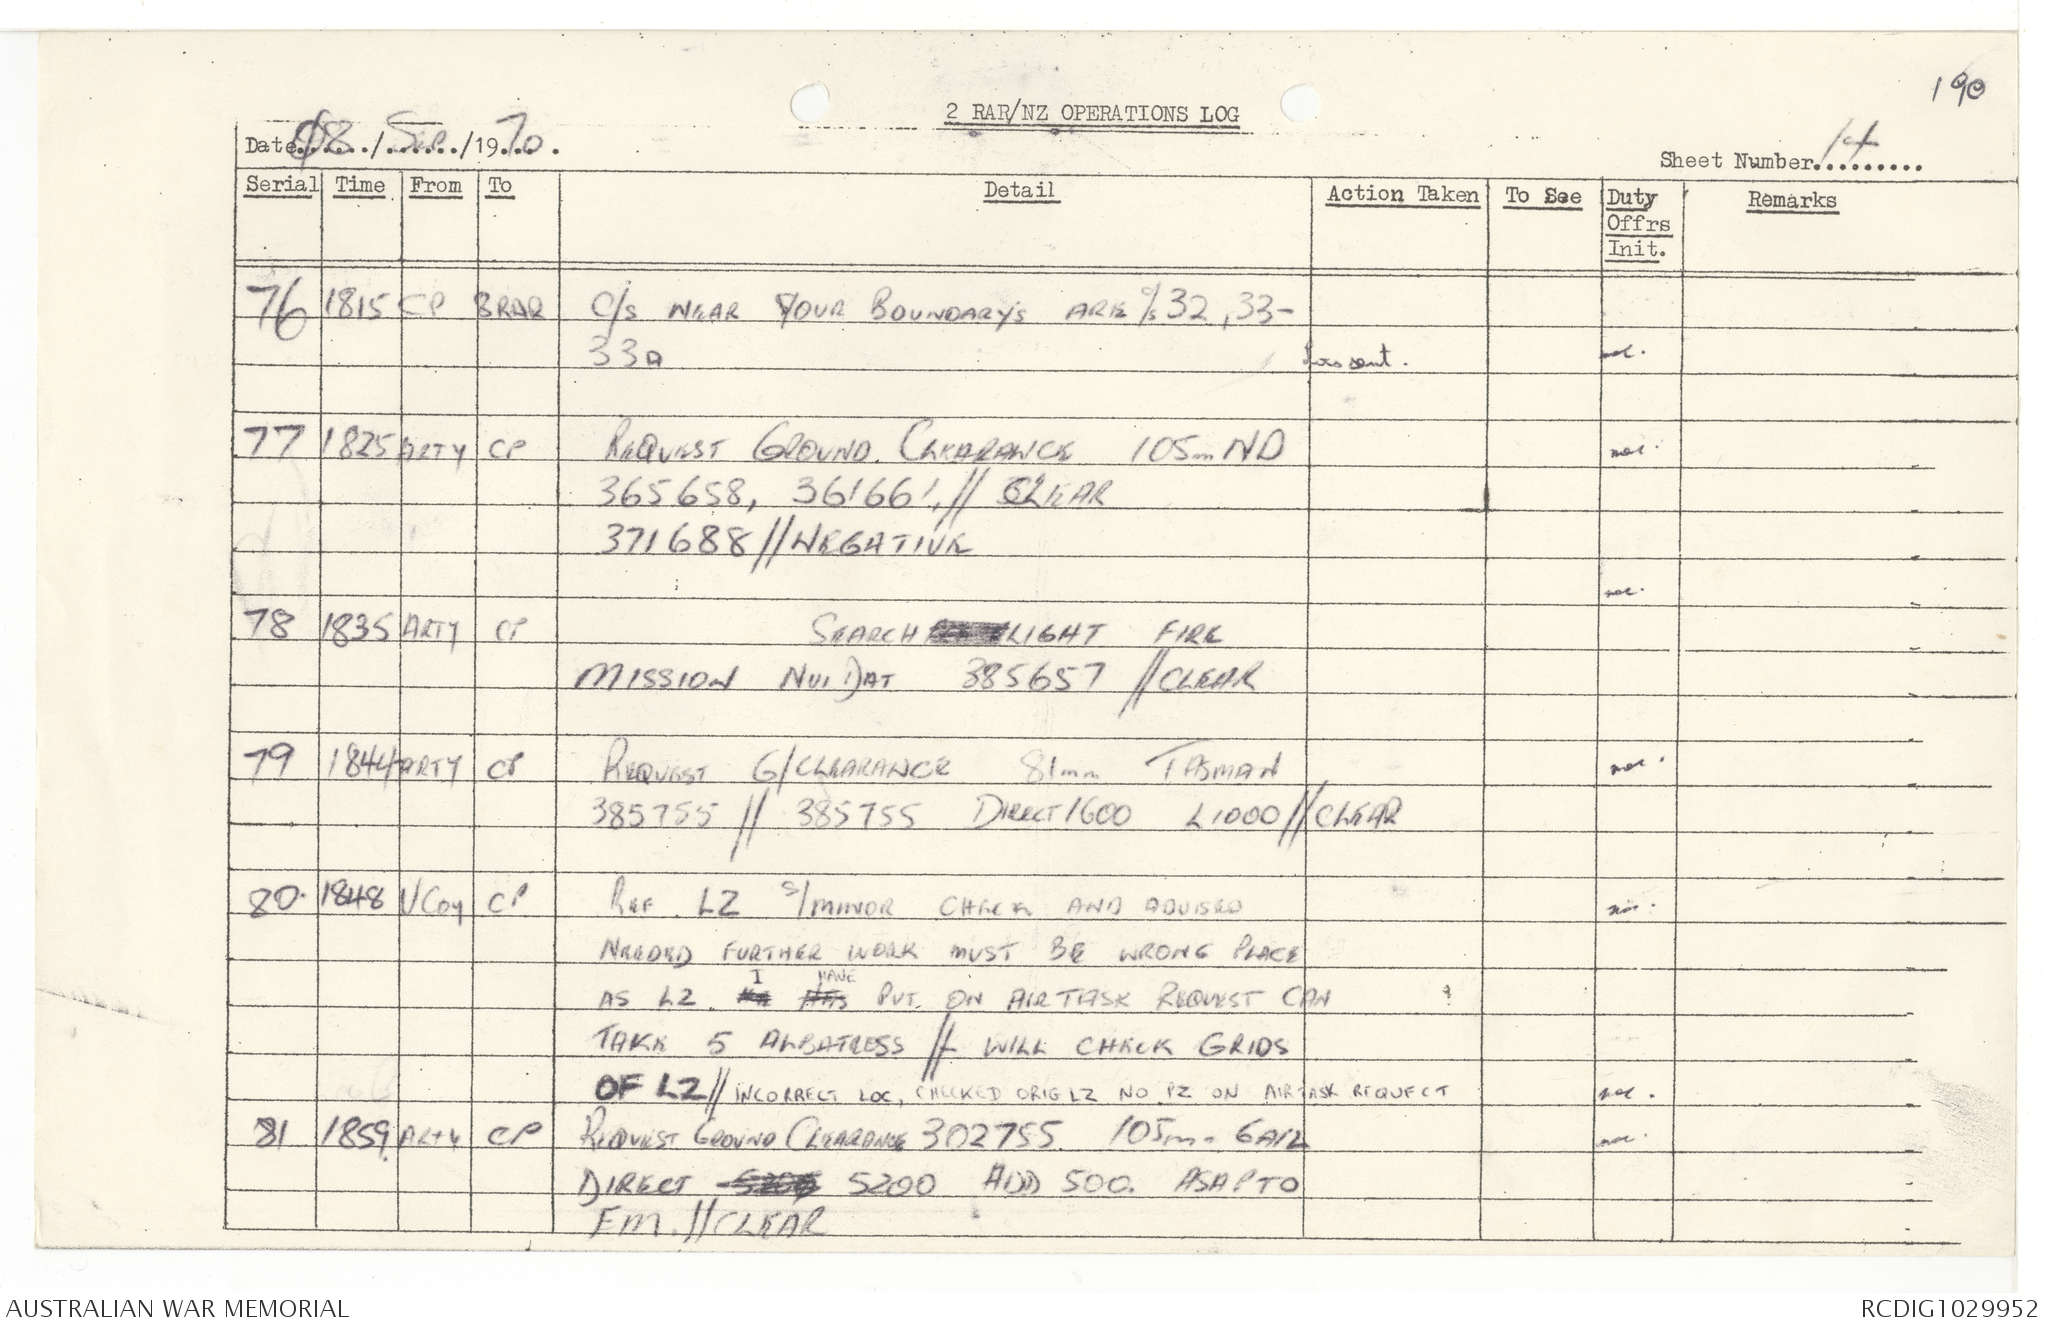 190
2 RAR/NZ OPERATIONS LOG
Date 08/Sep/1970.
Sheet Number 14
Serial Time From To Detail Action Taken To See Duty Offrs Init. Remarks
76 1815 CP 8RAR C/S NEAR YOUR BOUNDARY'S ARE C/S 32, 33-
33A
77 1825 ARTY CP REQUEST GROUND. CLEARANCE 105mm ND
365658, 361661,// CLEAR
371688//NEGATIVE
78 1835 ARTY CP SEARCH LIGHT FIRE
MISSION NUI DAT 385657 //CLEAR
79 1844 ARTY CP REQUEST G/CLEARANCE 81mm TASMAN
385755 // 385755 DIRECT 1600 L1000//CLEAR
80. 1848 V Coy CP REF. LZ S/MINOR CHECK AND ADVISED
NEEDED FURTHER WORK MUST BE WRONG PLACE
AS LZ. I HAVE PUT. ON AIR TASK REQUEST CAN
TAKE 5 ALBATRESS // WILL CHECK GRIDS
OF LZ// INCORRECT LOC, CHECKED ORIG LZ NO. PZ ON AIRTASK REQUECT
81 1859 ARTY CP REQUEST GROUND CLEARANCE 302755. 105mm GAIL
DIRECT 5200 ADD 500. ASAP TO
F.M.//CLEAR
AUSTRALIAN WAR MEMORIAL
RCDIG1029952